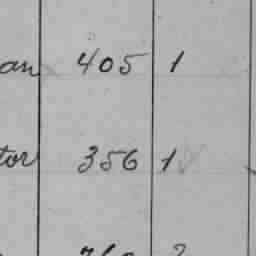 an 405 1
tor 356 1